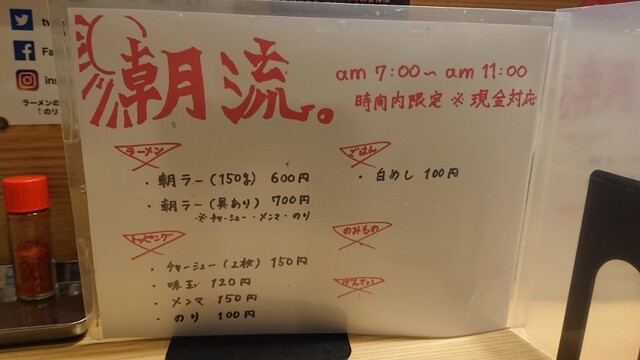 朝流。
am 7:00〜am 11:00
時間内限定 ※現金対応
ラーメン
・朝ラー(150g) 600円
・朝ラー(具あり) 700円
※チャーシュー・メンマ・のり
トッピング
・チャーシュー(2枚) 150円
・味玉 120円
・メンマ 150円
・のり 100円
ごはん
・白めし 100円
のみもの
げんてい